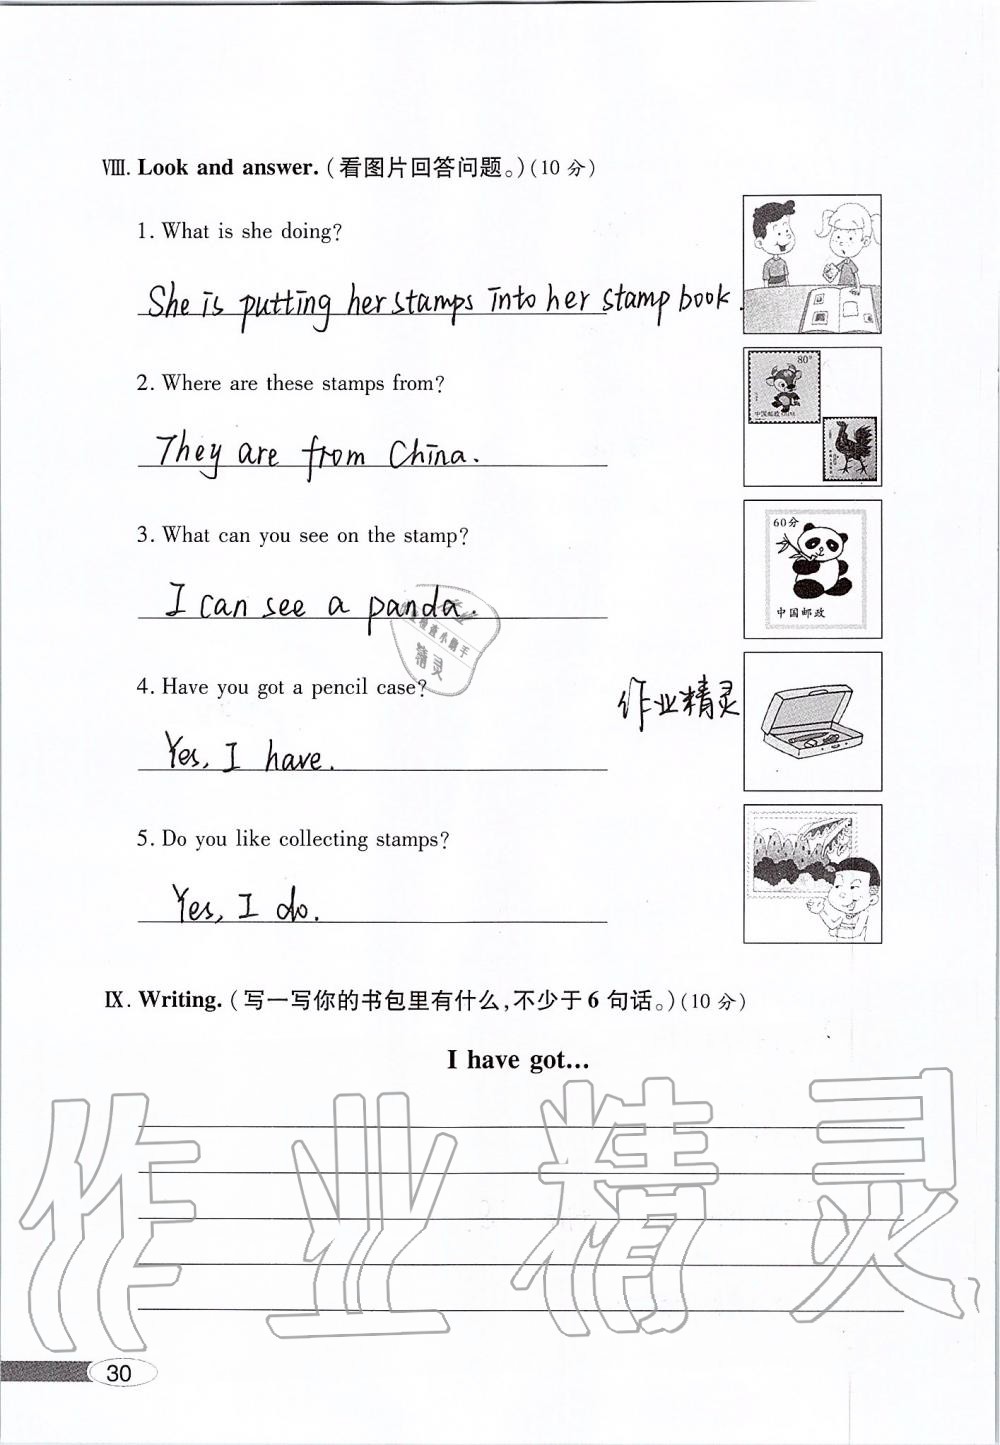 Ⅷ. Look and answer. (看图片回答问题。)(10 分)
1. What is she doing?
She is putting her stamps into her stamp book.
2. Where are these stamps from?
80分
中国邮政
They are from China.
3. What can you see on the stamp?
60分
I can see a panda.
中国邮政
作业检查小助手
精灵
4. Have you got a pencil case?
作业精灵
Yes, I have.
5. Do you like collecting stamps?
Yes, I do.
Ⅸ. Writing. (写一写你的书包里有什么,不少于 6 句话。)(10 分)
I have got...
作业精灵
30